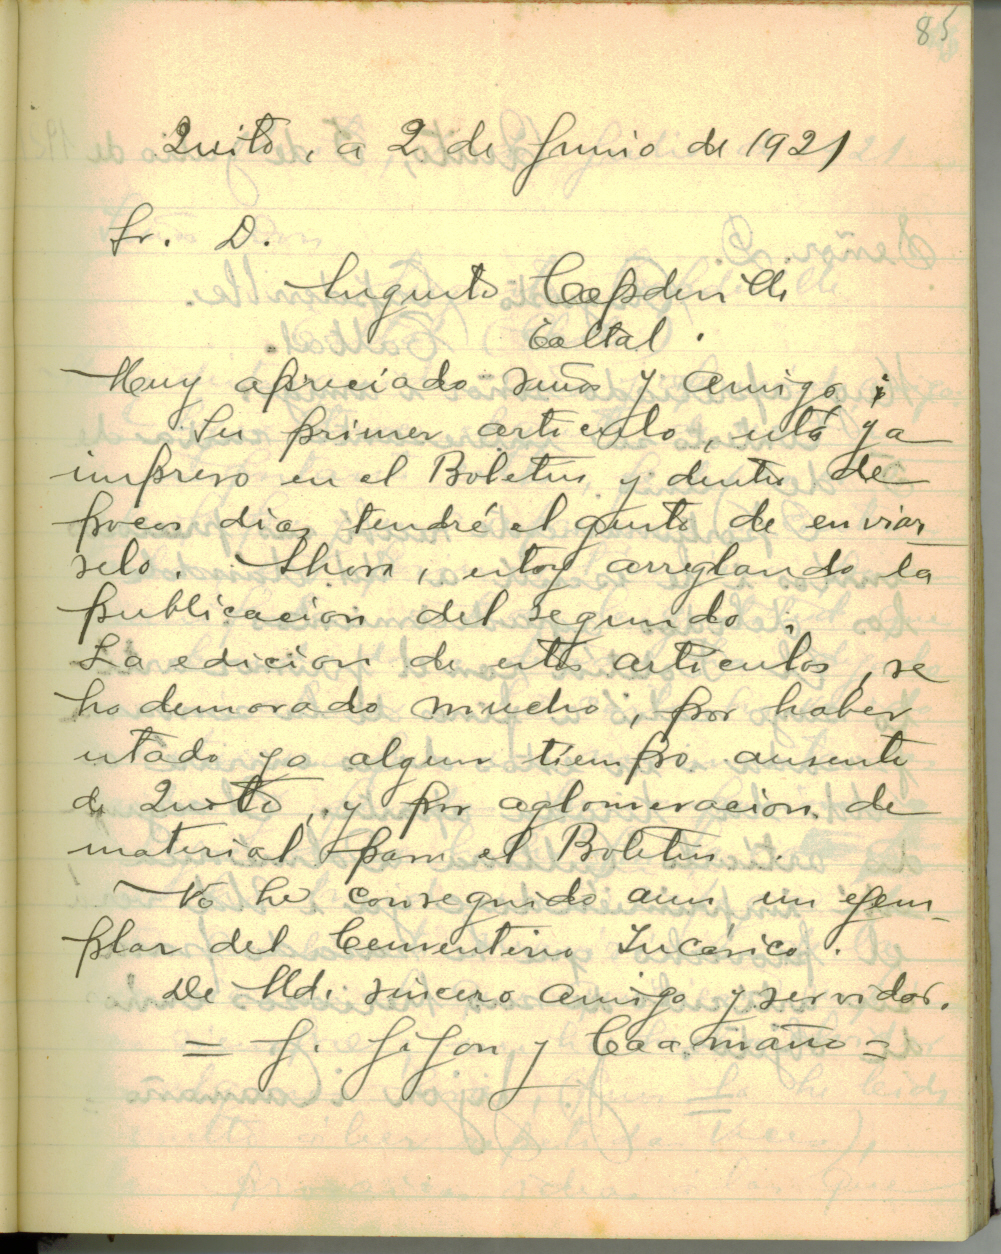 85
Quito, a 2 de Junio de 1921
Sr. D.
Augusto Capdeville
Taltal.
Muy apreciado señor y amigo:
Su primer articulo, está ya
impreso en el Boletin y dentro de
pocos dias tendré el gusto de enviar
selo. Ahora, estoy arreglando la
publicacion del segundo.
La edicion de estos articulos, se
ha demorado mucho, por haber
estado yo algun tiempo ausente
de Quito, y por aglomeracion de
material para el Boletin.
No he conseguido aun un ejem-
plar del Cementerio Incásico.
De Ud. sincero amigo y servidor.
= J. Jijon y Caamaño =